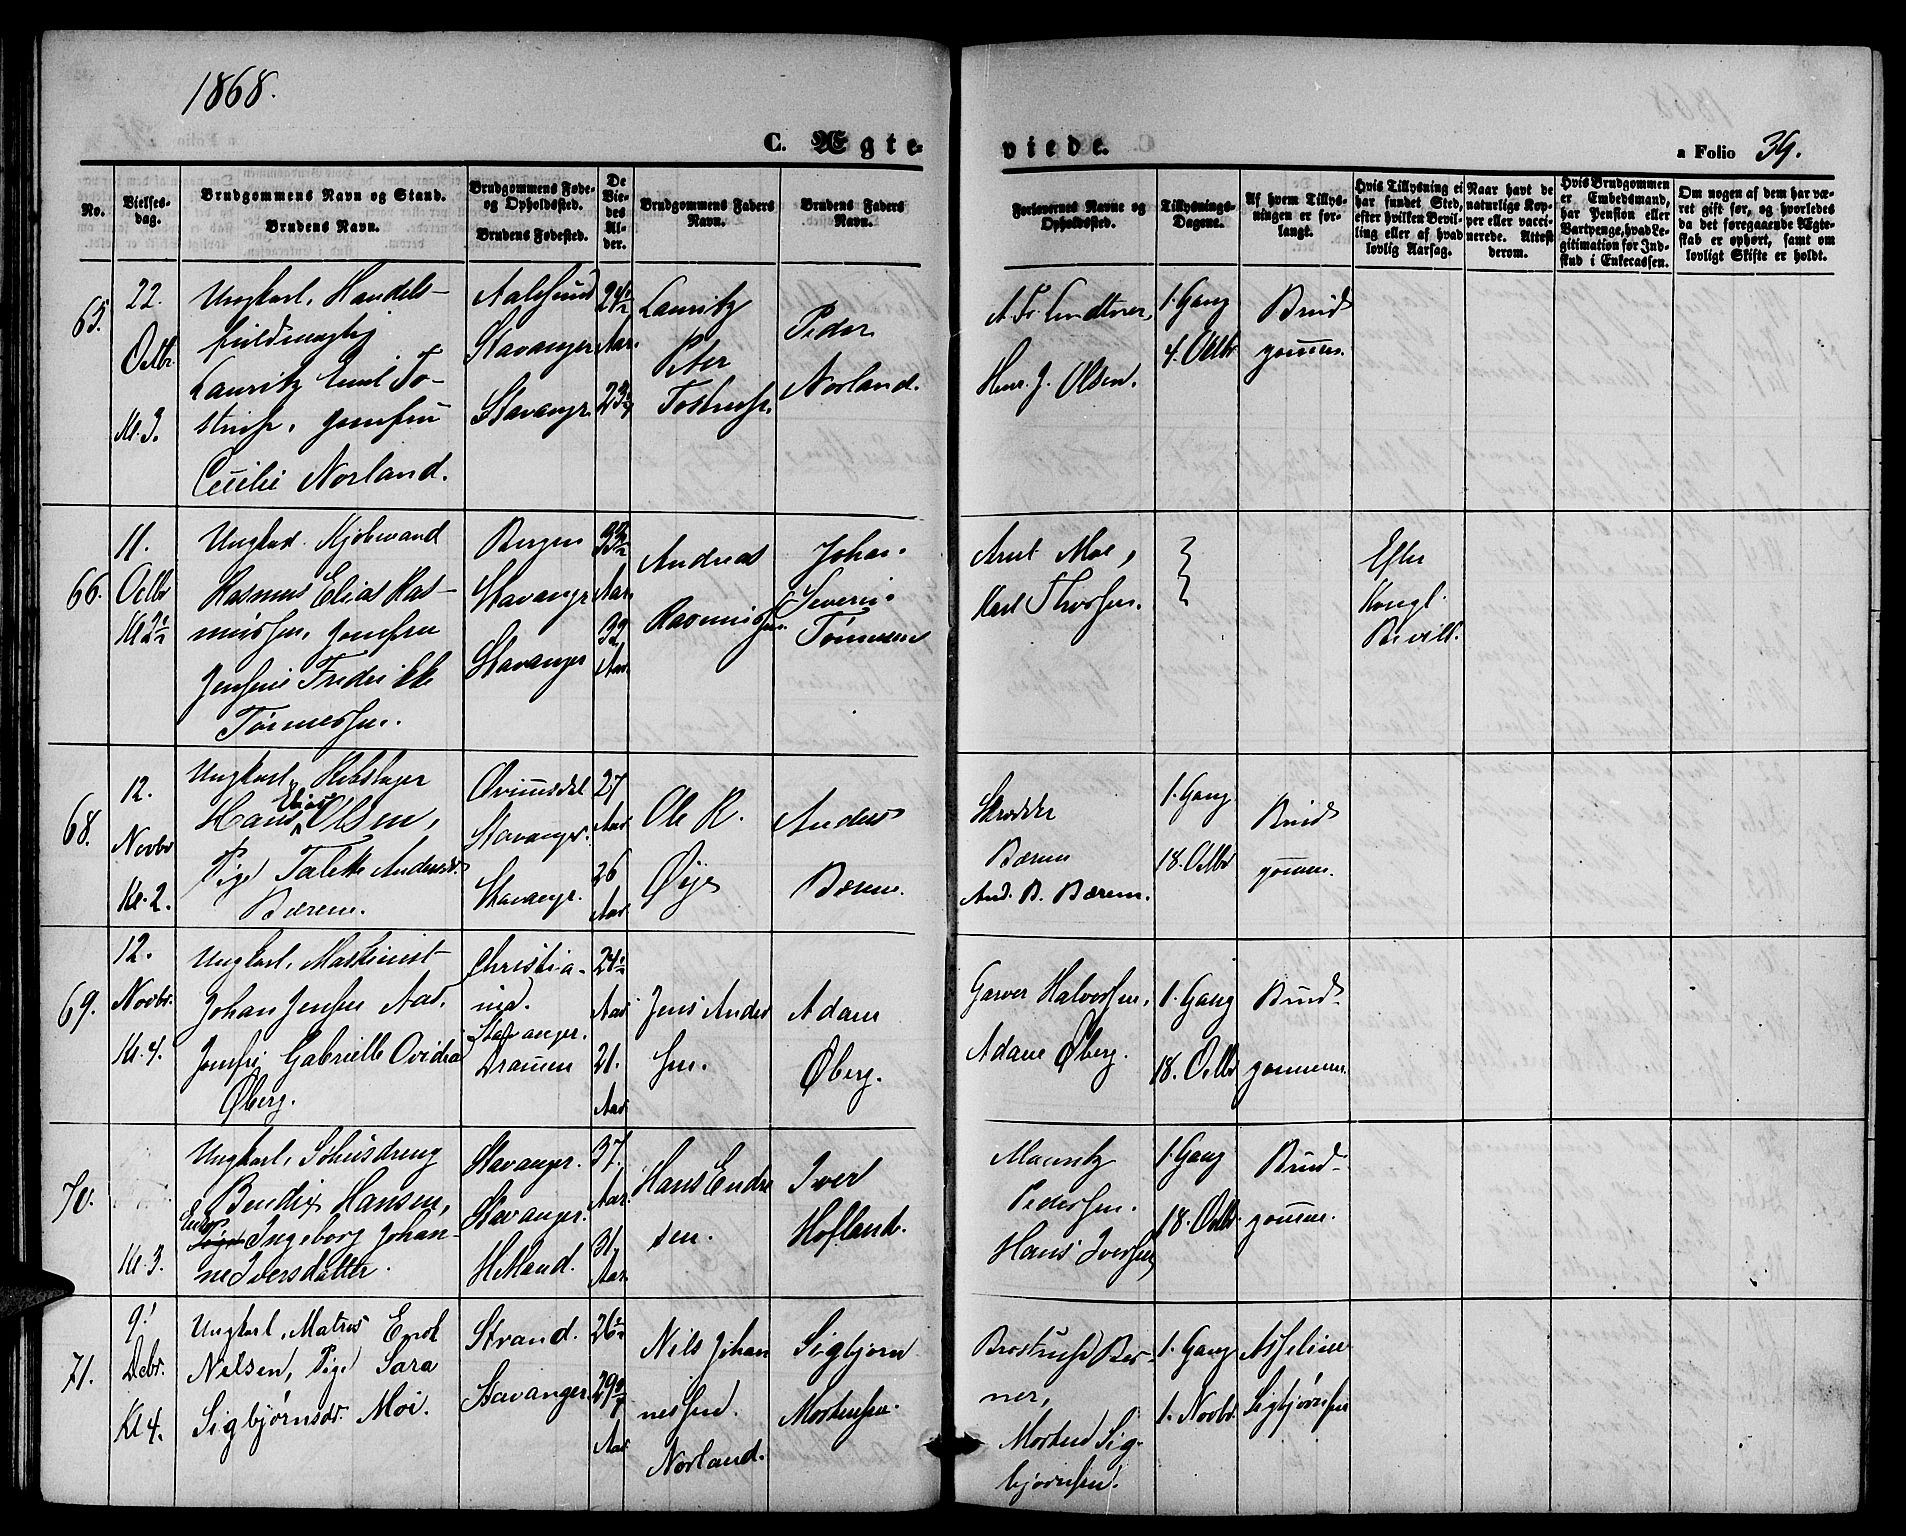 1868.
C. Ægte-
viede.
a Folio 39.
No.
Vielses-
dag.
Brudgommens Navn og Stand.
Brudens Navn.
Brudgommens Føde-
og Opholdssted.
Brudens Fødested.
De
Vie-
des
Al-
der.
Brudgommens Faders
Navn.
Brudens Faders
Navn.
Forlovernes Navne og
Opholdssted.
Tillysnings-
Dagene.
Af hvem Tillys-
ningen er for-
langt.
Hvis Tillysning ei
har fundet Sted,
efter hvilken Bevil-
ling eller af hvad
lovlig Aarsag.
Naar havt de
naturlige Kop-
per eller vacci-
nerede. Attest
derom.
Hvis Brudgommen
er Embedsmand,
har Pension eller
Vartpenge, hvad Le-
gitimation for Ind-
skud i Enkecassen.
Om nogen af dem har væ-
ret gift før, og hvorledes
da det foregaaende Ægte-
skab er ophørt, samt om
lovligt Skifte er holdt.
65.
22.
Octbr
Kl. 3.
Ungkarl, Handels-
fuldmægtig
Lauritz Emil To-
strup, Jomfru
Cecilie Norland.
Aalesund
Stavanger
Stavanger
24½
Aar.
Lauritz
Peter
Tostrup.
Peder
Norland.
A. Fr. Lindtner,
Henr. J. Olsen.
1. Gang
4. Octbr
Brud
gommen.
66.
11.
Octbr
Kl 2½
Ungkarl. Kjøbmand
Rasmus Elias Ras-
mussen, Jomfru
Jensine Fredrikke
Tønnessen.
Bergen
Stavanger
Stavanger
Aar
32
Aar.
Andreas
Rasmussen.
Johan
Severin
Tønnesen
Arnt Moe,
Karl Thorsen.
Efter
Kongl.
Bevill.
68.
12.
Novbr
Kl. 2.
Ungkarl, Rebslager
Elias
Hans Olsen,
Pige Talette Andersd.
Bærem.
Qvinesdal
Stavanger.
Stavanger.
27
Aar
26
Aar
Ole R.
Øye
Anders
Bærem.
Skrædder
Bærem
And. B. Bærem.
1. Gang
18. Octbr
Brud
gommen.
69.
12.
Novbr.
Kl. 4.
Ungkarl, Maskinist
Johan Jensen Aas.
Jomfru Gabrielle Ovidia
Øberg.
Christia-
nia.
Stavanger.
Dramen
24½
Aar
21.
Aar
Jens Ander
sen.
Adam
Øberg.
Garver Halvorsen,
Adam Øberg.
1. Gang
18. Octbr
Brud-
gommen.
70.
Kl. 3.
Ungkarl, Søhusdreng
Bendix Hansen,
Enke
Pige Ingeborg Johan-
ne Iversdatter.
Stavanger.
Stavanger.
Hetland.
37.
Aar.
31,
Aar.
Hans Endre
sen.
Iver
Hofland.
Mauritz
Pedersen.
Hans Iversen,
1. Gang
18. Octbr.
Brud-
gommen.
71.
9'
Debr.
Kl 4.
Ungkarl, Matros Enok
Nilsen, Pige Sara
Sigbjørnsdr. Moi.
Strand.
Stavanger
26½
Aar
Nils Johan
nessen.
Norland.
Sigbjørn
Mortensen.
Brostrup Ber-
ner,
Morten Sig-
bjørnsen.
1. Gang
1. Novbr.
Asseline
Sigbjørnsen